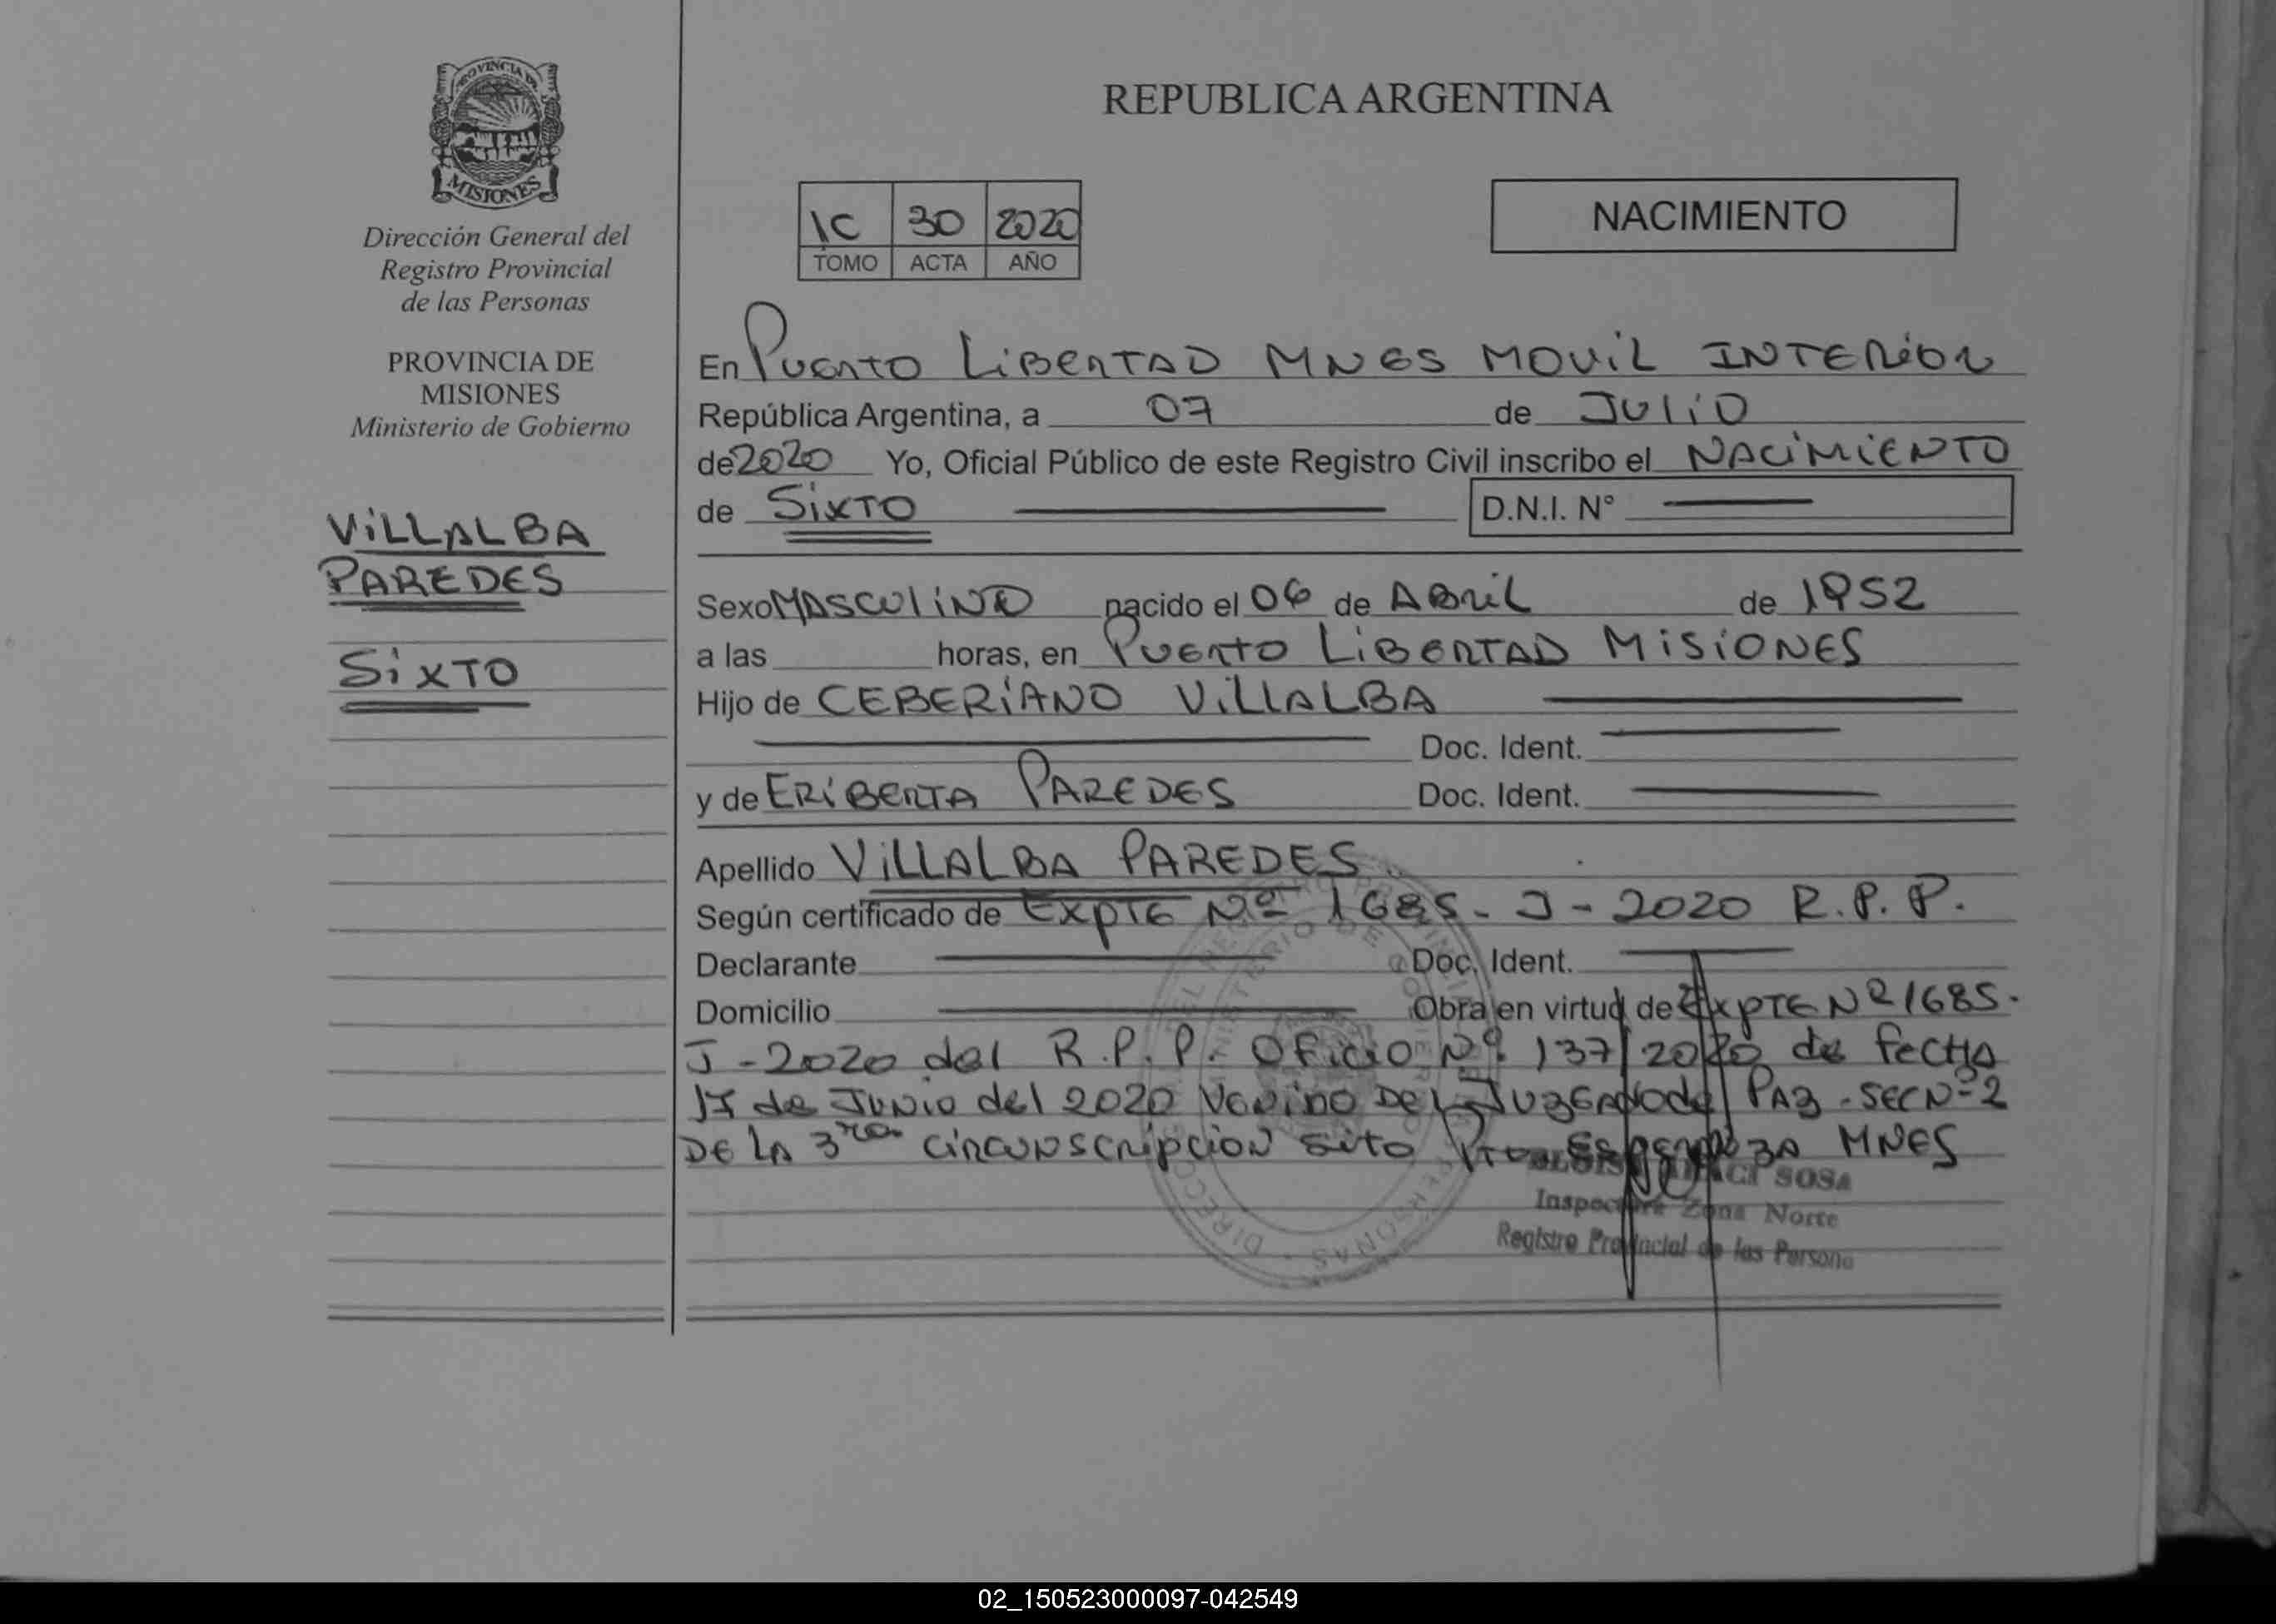 PROVINCIA DE
MISIONES
Dirección General del
Registro Provincial
de las Personas
PROVINCIA DE
MISIONES
Ministerio de Gobierno
VILLALBA
PAREDES
SIXTO
REPUBLICA ARGENTINA
1C 30 2020
TOMO ACTA AÑO
NACIMIENTO
En PUERTO LIBERTAD MNES MOVIL INTERIOR
República Argentina, a 07 de JULIO
de 2020 Yo, Oficial Público de este Registro Civil inscribo el NACIMIENTO
de SIXTO D.N.I. N°
Sexo MASCULINO nacido el 06 de ABRIL de 1952
a las horas, en PUERTO LIBERTAD MISIONES
Hijo de CEBERIANO VILLALBA
Doc. Ident.
y de ERIBERTA PAREDES Doc. Ident.
Apellido VILLALBA PAREDES
Según certificado de EXPTE Nº 1685 - J - 2020 R.P.P.
Declarante Doc. Ident.
Domicilio Obra en virtud de EXPTE Nº 1685-
J - 2020 del R.P.P. OFICIO Nº 137/2020 de FECHA
17 de JUNIO del 2020 VENIDO DEL JUZGADO de PAZ - SEC Nº 2
DE LA 3ra CIRCUNSCRIPCION sito Pto ESPERANZA MNES
SOSA
Inspectora Zona Norte
Registro Provincial de las Persona
02_150523000097-042549